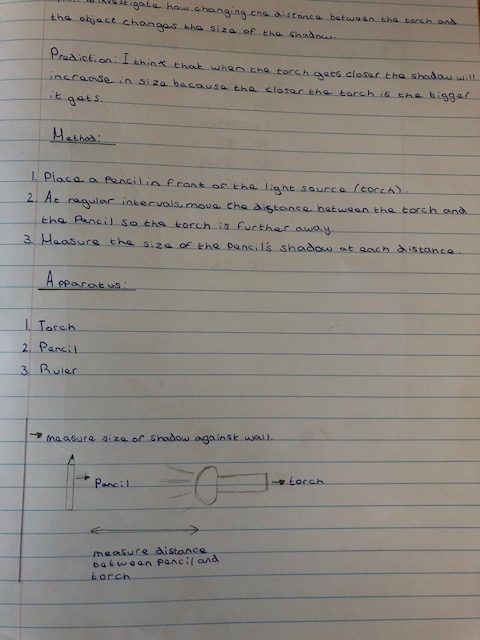 to investigate how changing the distance between the torch and
the object changes the size of the shadow.
Prediction: I think that when the torch gets closer the shadow will
increase in size because the closer the torch is the bigger
it gets.
Method:
1. Place a pencil in front of the light source (torch).
2. At regular intervals, move the distance between the torch and
the pencil so the torch is further away.
3. Measure the size of the pencil's shadow at each distance.
Apparatus:
1. Torch
2. Pencil
3. Ruler
→ measure size of shadow against wall.
→ Pencil
→ torch
measure distance
between pencil and
torch